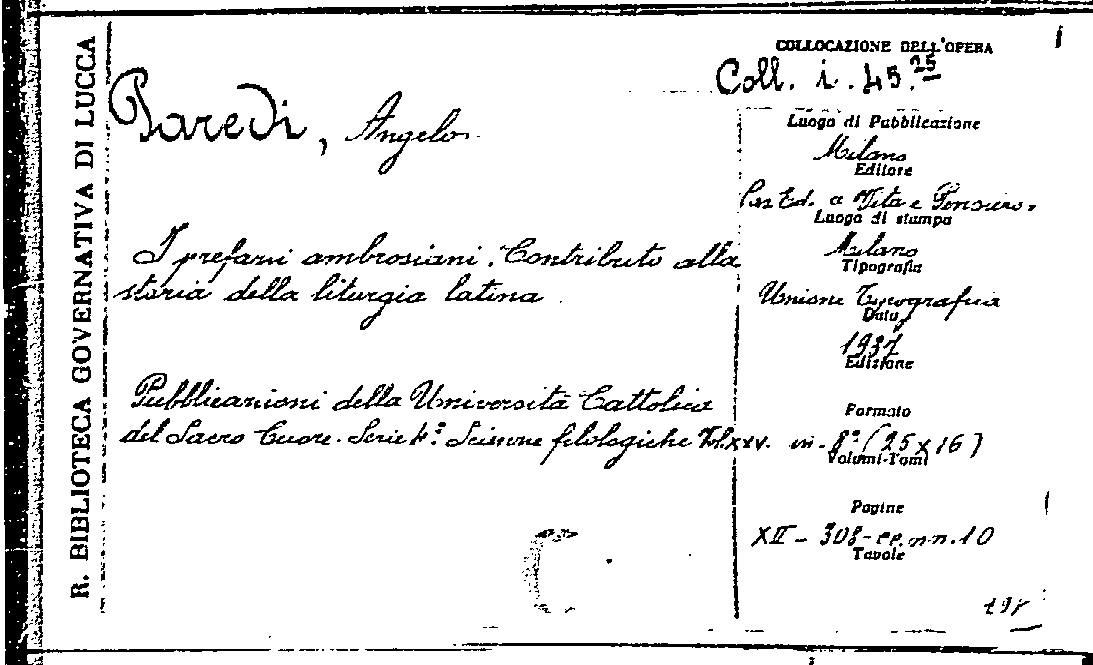 R. BIBLIOTECA GOVERNATIVA DI LUCCA
COLLOCAZIONE DELL'OPERA
Coll. i. 45.25
Paredi, Angelo.
I prefazi ambrosiani. Contributo alla
storia della liturgia latina.
Pubblicazioni della Università Cattolica
del Sacro Cuore. Serie 4ª. Scienze filologiche Vol. XXV.
Luogo di Pubblicazione
Milano
Editore
Ed. Vita e Pensiero.
Luogo di stampa
Milano
Tipografia
Unione Tipografica
Data
1937
Edizione
Formato
in-8° (25x16)
Volumi-Tomi
Pagine
XII - 308 - cc. nn. 10
Tavole